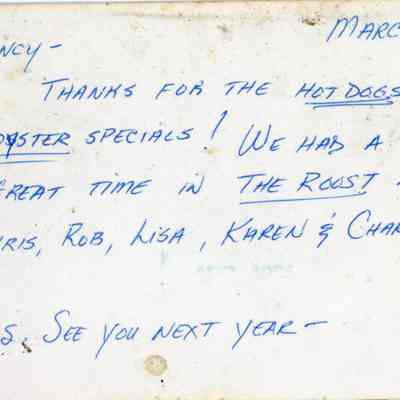 MARC
NCY -
THANKS FOR THE HOT DOGS
OYSTER SPECIALS! WE HAD A
GREAT TIME IN THE ROOST -
RIS, ROB, LISA, KAREN & CHAR
S. SEE YOU NEXT YEAR -